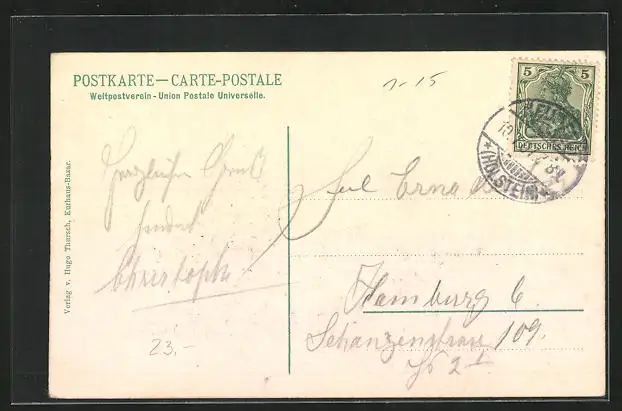 POSTKARTE — CARTE-POSTALE
Weltpostverein - Union Postale Universelle.
5 5
DEUTSCHES REICH
(HOLSTEIN)
Verlag v. Hugo Thursch, Kurhaus-Bazar.
Herzlichen Gruß
sendet
Christoph
23.-
Hamburg 6.
Schanzenstrasse 109.